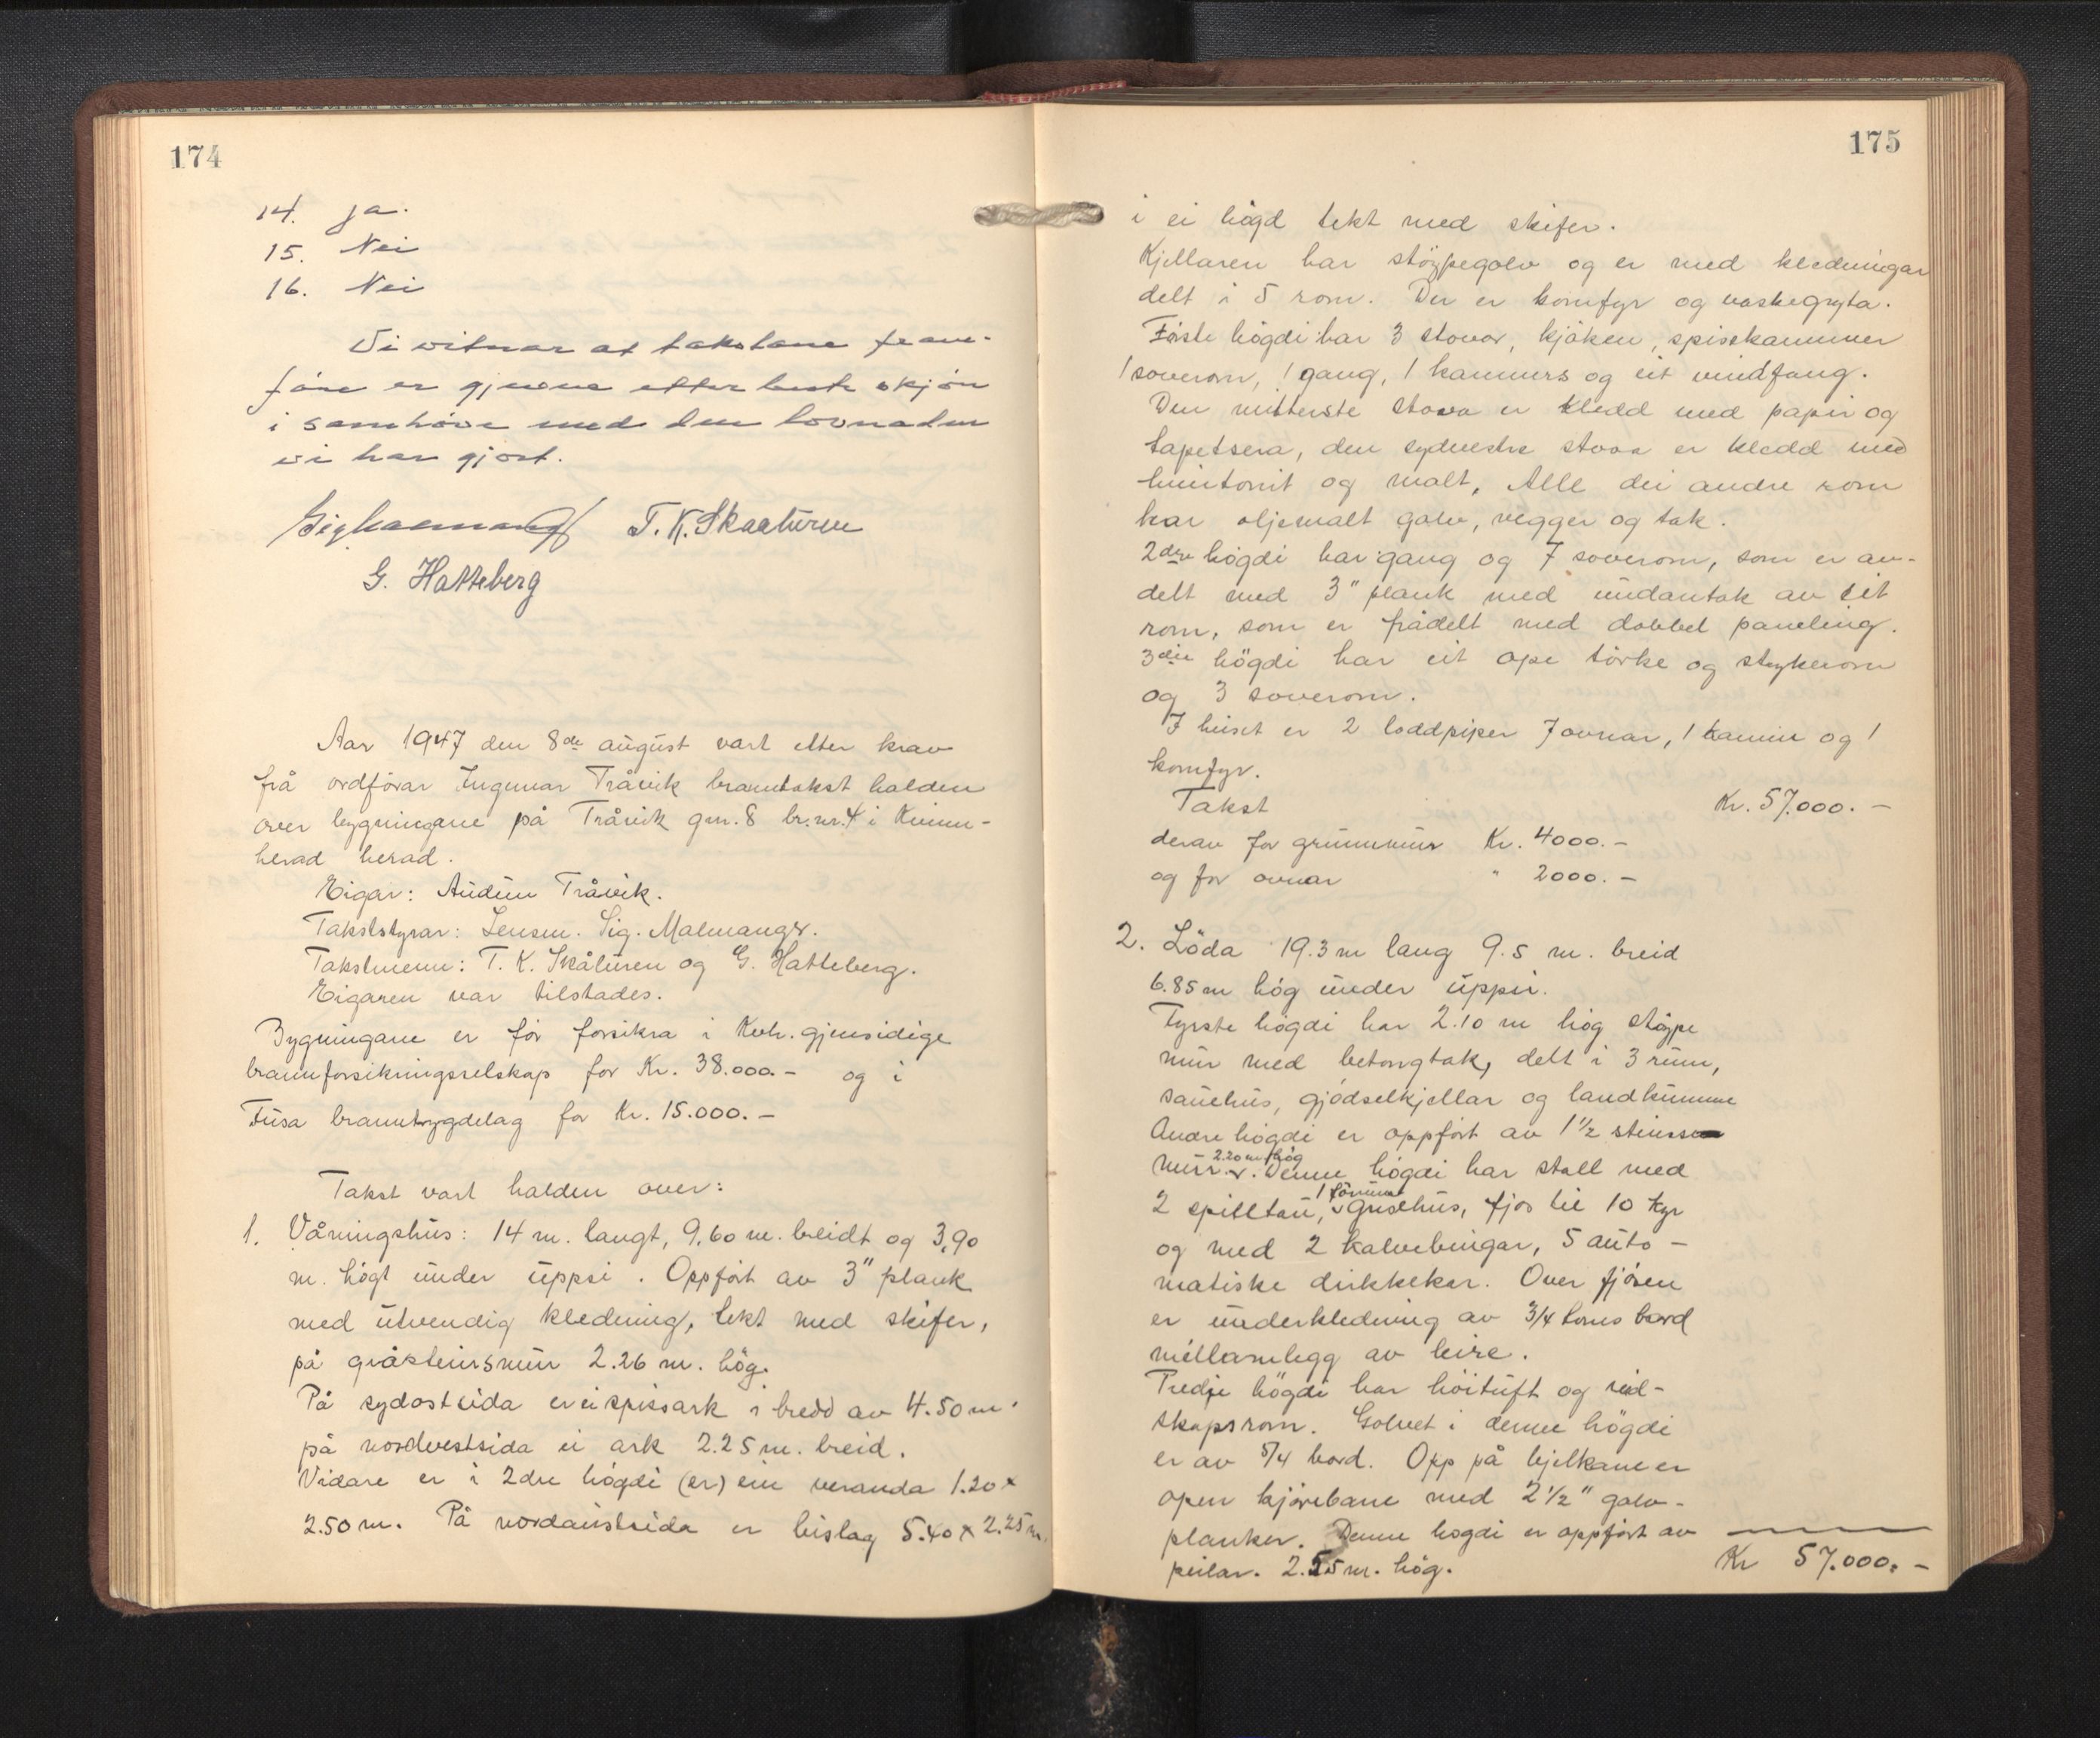 174
14. ja.
15. Nei
16. Nei
Vi vitnar at takstane fram-
före er gjevne etter beste skjön
i samhöve med den lovnaden
vi har gjort.
T. K. Skaaluren
G. Hatteberg
Aar 1947 den 8de august vart etter krav
frå ordförar Ingemar Tråvik branntakst halden
over bygningane på Tråvik gm. 8 br.nr. 4 i Kvinn-
herad herad.
Eigar: Audun Tråvik.
Takststyrar: Lensm. Sig. Malmanger.
Takstmenn: T. K. Skåluren og G. Hatteberg.
Eigaren var tilstades.
Bygningane er för forsikra i Kvh. gjensidige
brannforsikringsselskap for Kr. 38.000.- og i
Fusa branntrygdelag for Kr. 15.000.-
Takst vart halden over:
1. Våningshus: 14 m. langt, 9,60 m. breidt og 3,90
m. högt under uppsi. Oppfört av 3" plank
med utvendig kledning, tekt med skifer,
på gråsteinsmur 2.26 m. hög.
På sydostsida er ei spissark i bredd av 4.50 m.
på nordvestsida ei ark 2.25 m. breid.
Vidare er i 2dre högdi (er) ein veranda 1.20 x
2.50 m. På nordaustsida er bislag 5.40 x 2.25 m.
175
i ei högd tekt med skifer.
Kjellaren har stöypegolv og er med kledningar
delt i 5 rom. Der er komfyr og vaskegryta.
Förste högdi har 3 stover, kjöken, spisekammer
1 soverom, 1 gang, 1 kammers og eit vindfang.
Den mitterste stova er kledd med papir og
tapetsera, den sydvestre stova er kledd med
huntonit og malt. Alle dei andre rom
har oljemalt golv, vegger og tak.
2dre högdi har gang og 7 soverom, som er av-
delt med 3" plank med undantak av eit
rom, som er frådelt med dobbel paneling.
3die högdi har eit ope törke og strykerom
og 3 soverom.
I huset er 2 loddpiper 7 ovnar, 1 kamin og 1
komfyr.
Takst Kr. 57.000.-
derav for grunnmur Kr. 4000.-
og for ovnar " 2000.-
2. Löda 19.3 m lang 9.5 m. breid
6.85 m hög under uppsi.
Fyrste högdi har 2.10 m hög stöype
mur med betongtak, delt i 3 rum,
sauehus, gjödselkjellar og landkumme
Andre högdi er oppfört av 1½ steins
mur 2.20 m hög. Denne högdi har stall med
2 spilltau, 1 förrum grisehus, fjös til 10 kyr
og med 2 kalvebingar, 5 auto-
matiske drikkekar. Over fjösen
er underkledning av 3/4 toms bord
mellomlegg av leire.
Tredje högdi har höituft og reid-
skapsrom. Golvet i denne högdi
er av 5/4 bord. Opp på bjelkane er
open kjörebane med 2½" golv-
planker. Denne högdi er oppfört av
peilar. 2.55 m. hög.
Kr 57.000.-